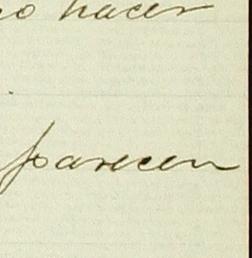 hacer
parecen